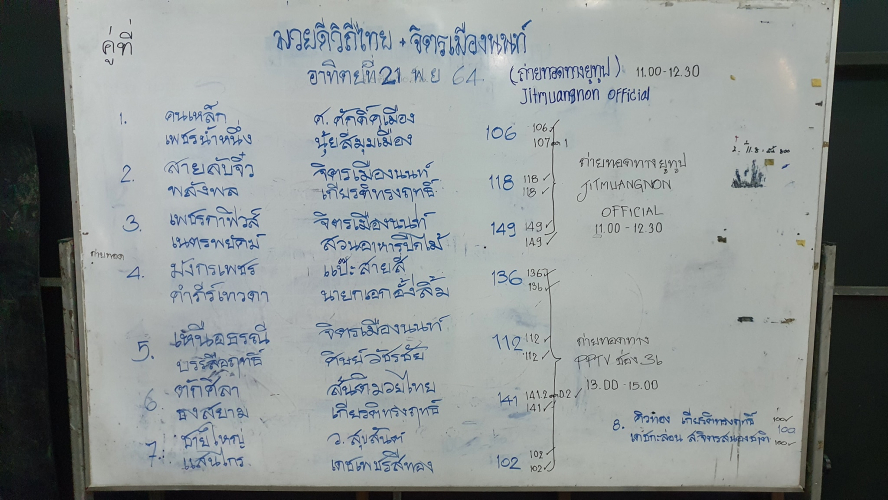 คู่ที่
มวยดีวิถีไทย + จิตรเมืองนนท์
อาทิตย์ที่ 21 พ.ย 64 (ถ่ายทอดทางยูทูป) 11.00-12.30
Jitmuangnon Official
1. คนเหล็ก ศ. ศักดิ์ศรีเมือง 106 106
เพชรน้ำหนึ่ง นุ้ยสี่มุมเมือง 107 1
2. สายลับจิ๋ว จิตรเมืองนนท์ 118 118
พลังพล เกียรติทรงฤทธิ์ 118
3. จิตรเมืองนนท์ 149 149
สวนอาหารปีกไม้ 149
ถ่ายทอดทางยูทูป
JITMUANGNON
OFFICIAL
11.00-12.30
ถ่ายทอด
4. มังกรเพชร แป๊ะสายสี 136 136
คำภีร์เทวดา นายกเอกอั้งลิ้ม 136
5. จิตรเมืองนนท์ 112 112
ศิษย์วัชรชัย 112
6. ตักศิลา สันติมวยไทย 141 141.2 0.2
ธงสยาม เกียรติทรงฤทธิ์ 141
7. ชายใหญ่ 102 102
แสนไกร เดชเพชรสีทอง 102
ถ่ายทอดทาง
PPTV ช่อง 36
13.00-15.00
8. คิวท่อง เกียรติทรงฤทธิ์ 100 100
100